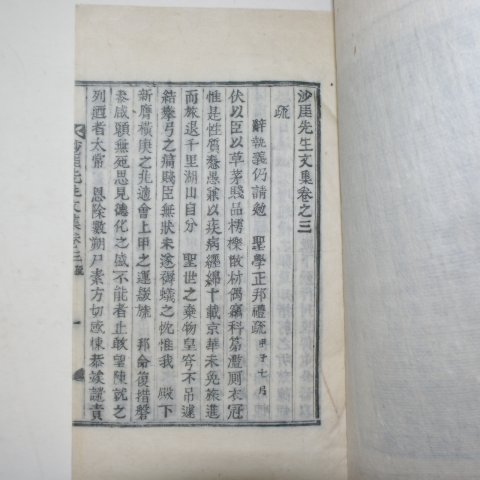 沙厓先生文集卷之三
疏
辭執義仍請勉 聖學正邦禮疏 甲子七月
伏以臣以草茅賤品樗櫟散材偶竊科第濫厠衣冠
惟是性質憃愚兼以疾病經綿十載京華未免旅進
而旅退千里湖山自分 聖世之棄物皇穹不吊遽
結攀弓之痛賤臣無狀未遂褥蟻之忱惟我 殿下
新膺橫庚之兆適會上甲之運毅旄 邦命復措磐
泰咸願無死思見德化之盛不能者止敢望陳就之
列迺者太常 恩除數朔尸素方切㥘悚恭竢譴責
沙厓先生文集卷三 疏 一